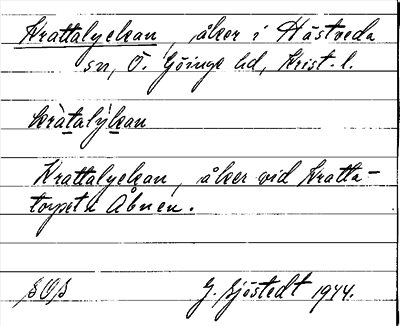 Krattalyckan, åker i Hästveda
sn, Ö. Göinge hd, Krist. l.
kràtalýkan
Krattalyckan, åker vid Kratta-
torpet Åbuen.
SOS G. Sjöstedt 1944.